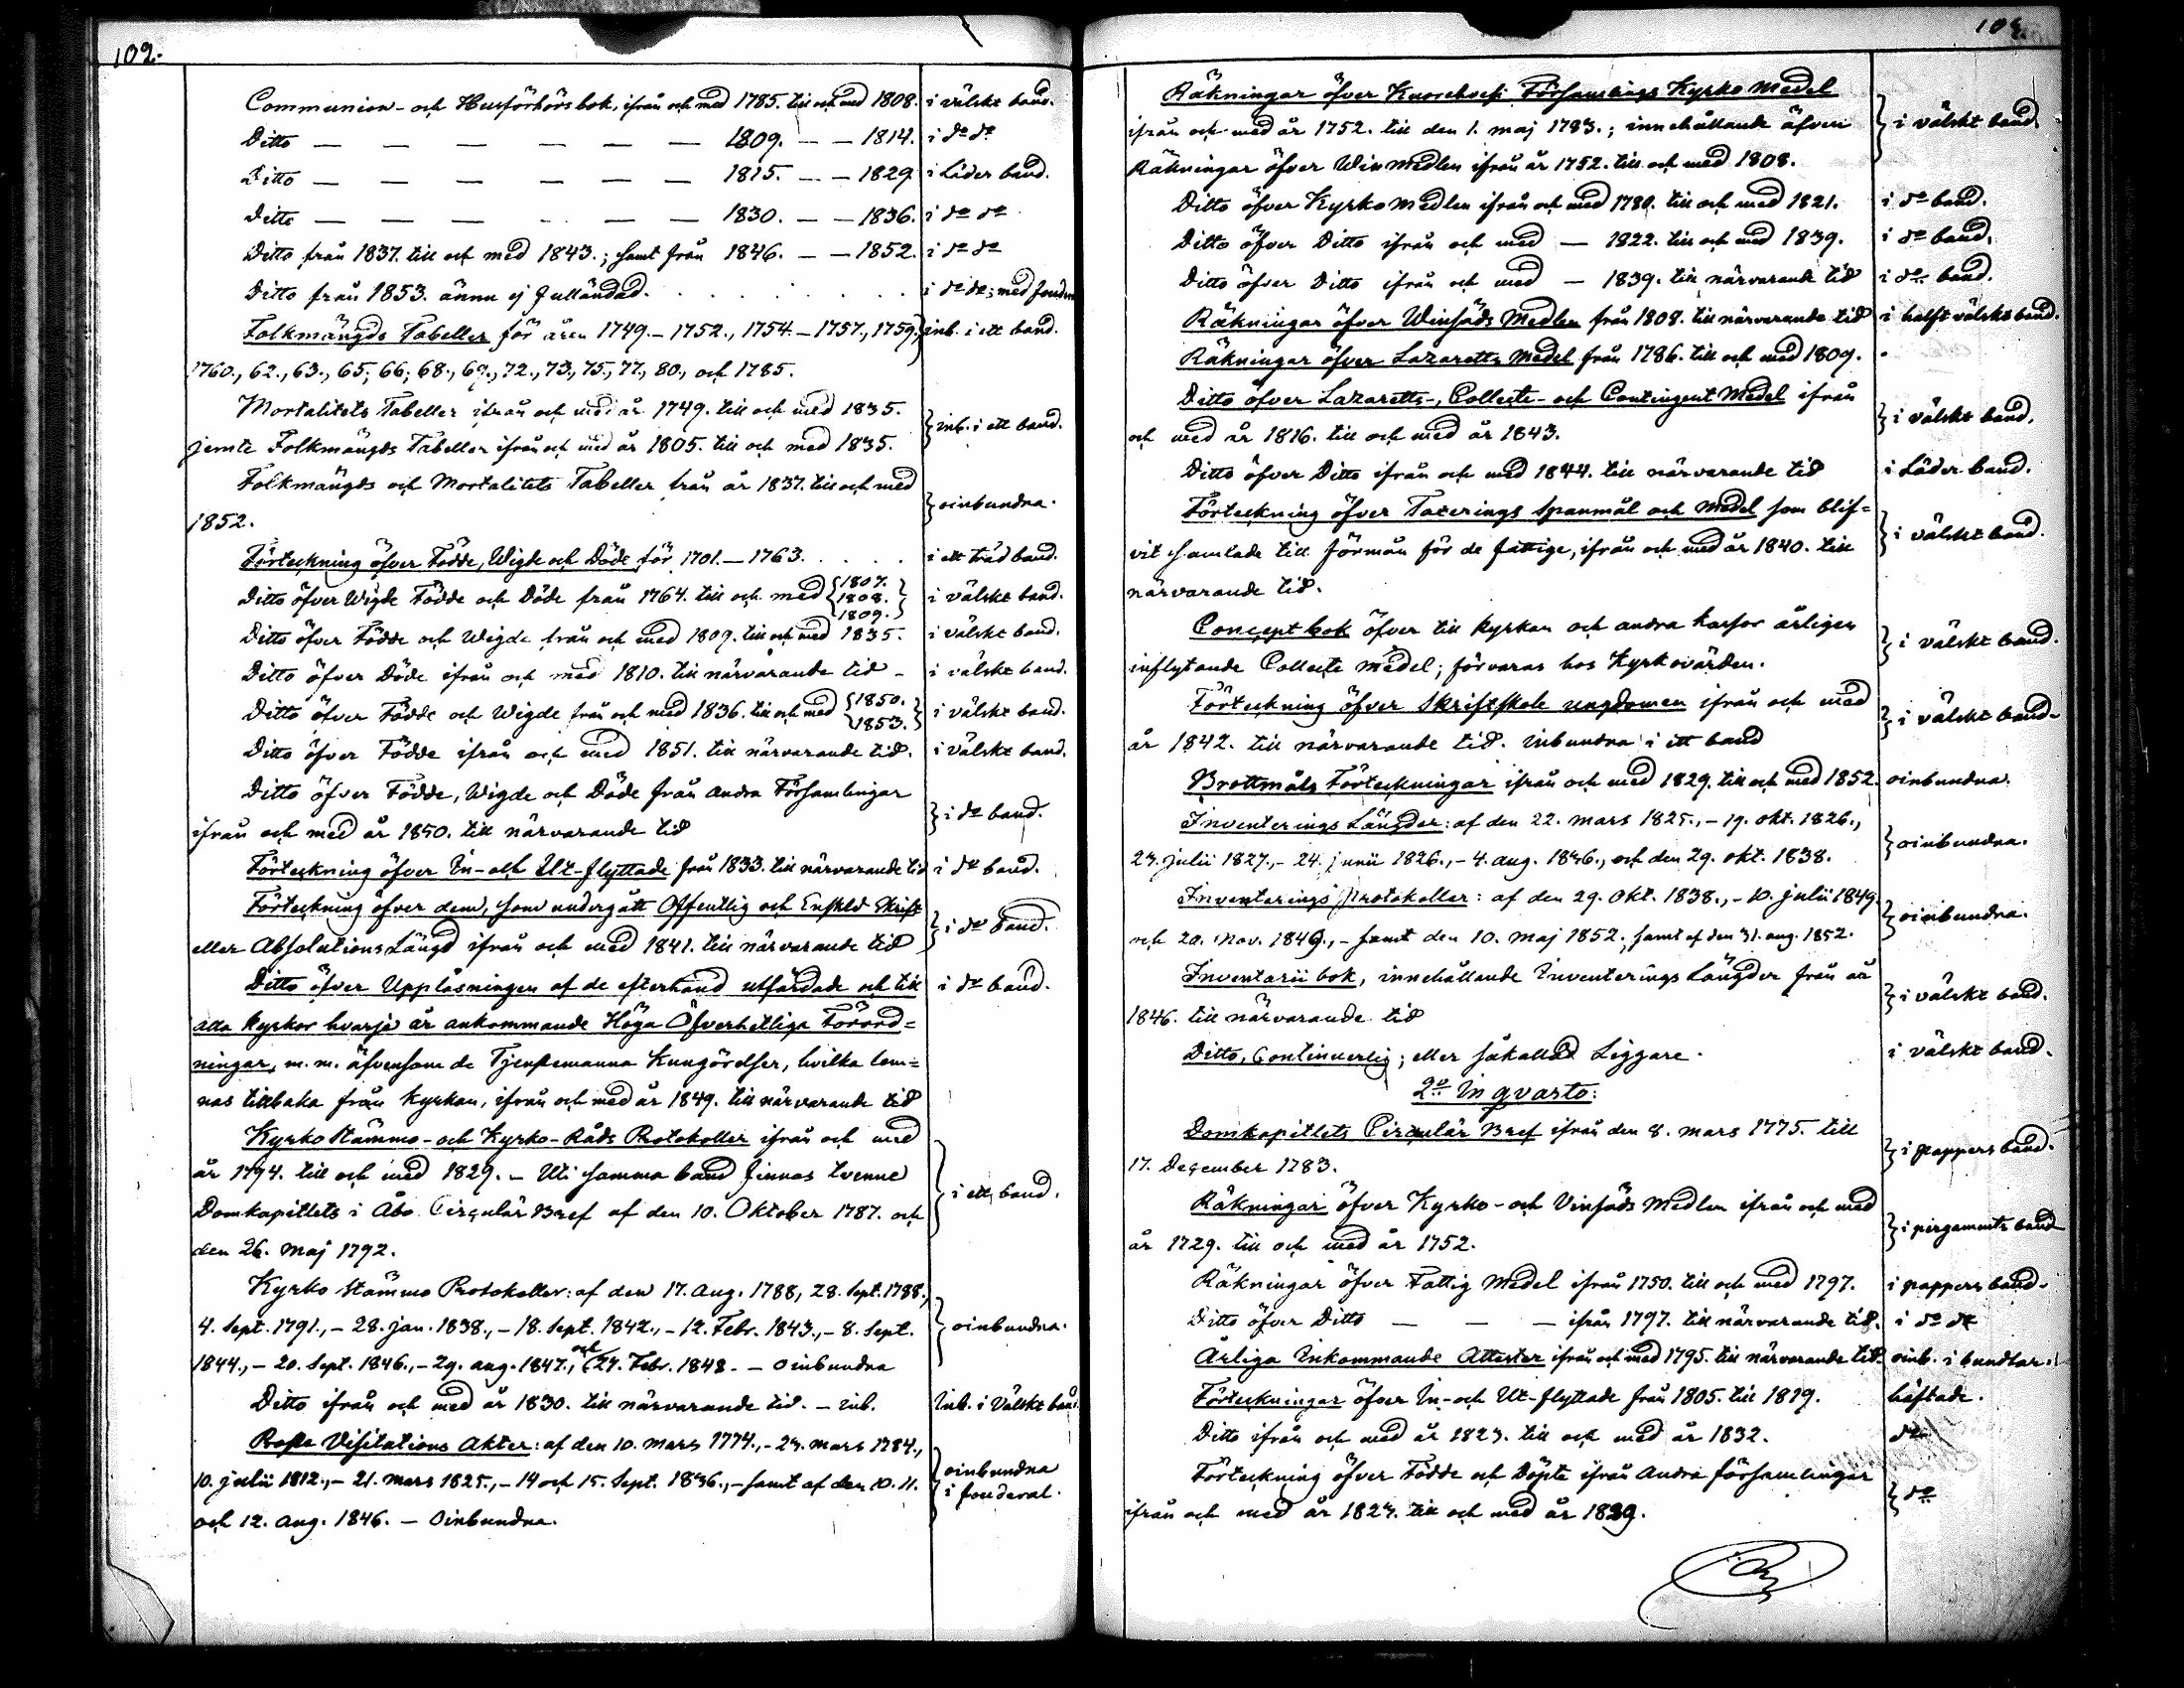 102.
Communion- och Husförhörsbok, ifrån och med 1785. till och med 1808. i välskt band.
Ditto — — — — — — 1809. — — 1814. i do do
Ditto — — — — — — 1815. — — 1829. i Läder band.
Ditto — — — — — — 1830. — — 1836. i do do
Ditto från 1837. till och med 1843.; samt från 1846. — — 1852. i do do
Ditto från 1853. ännu ej fulländad. . . . . . . . i do do; med
Folkmängds Tabeller för åren 1749.–1752., 1754.–1757., 1759., inb. i ett band.
1760., 62., 63., 65., 66., 68., 69., 72., 73., 75., 77., 80., och 1785.
Mortalitets Tabeller ifrån och med år 1749. till och med 1835.
jemte Folkmängds Tabeller ifrån och med år 1805. till och med 1835. } inb. i ett band.
Folkmängds och Mortalitets Tabeller från år 1837. till och med
1852. } oinbundna.
Förteckning öfver Födde, Wigde och Döde för 1701.—1763. . . . . i ett träd band.
Ditto öfver Wigde Födde och Döde från 1764. till och med {1807. 1808. 1809.} i välskt band.
Ditto öfver Födde och Wigde från och med 1809. till och med 1835. i välskt band.
Ditto öfver Döde ifrån och med 1810. till närvarande tid – i välskt band.
Ditto öfver Födde och Wigde från och med 1836. till och med {1850. 1853.} i välskt band.
Ditto öfver Födde ifrån och med 1851. till närvarande tid. i välskt band.
Ditto öfver Födde, Wigde och Döde från andra Församlingar
ifrån och med år 1850. till närvarande tid } i do band.
Förteckning öfver In- och Ut-flyttade från 1833. till närvarande tid i do band.
Förteckning öfver dem, som undergått Offentlig och Enskld Skrift
eller Absolutions Längd ifrån och med 1841. till närvarande tid } i do band.
Ditto öfver Uppläsningen af de efterhand utfärdade och till i do band.
alla kyrkor hvarje år ankommande Höga Öfverhetliga Förord=
ningar, m. m. äfvensom de Tjenstemanna Kungörelser, hvilka lem=
nas tillbaka från Kyrkan, ifrån och med år 1849. till närvarande tid
Kyrko Stämmo- och Kyrko-Råds Protokoller ifrån och med
år 1794. till och med 1829. – Uti samma band finnas tvenne
Domkapitlets i Åbo Circulär Bref af den 10. Oktober 1787. och } i ett band.
den 26. Maj 1792.
Kyrko Stämmo Protokoller: af den 17. Aug. 1788, 28. Sept. 1788.,
4. Sept. 1791., – 28. Jan. 1838., – 18. Sept. 1842., – 12. Febr. 1843., – 8. Sept. } oinbundna.
1844., – 20. Sept. 1846., – 29. aug. 1847., och 27. Febr. 1848. – oinbundna
Ditto ifrån och med år 1830. till närvarande tid. – inb. Inb. i Välskt band.
Visitations Akter: af den 10. Mars 1774., – 23. mars 1784.,
10. julii 1812., – 21. Mars 1825., – 14 och 15. Sept. 1836., – samt af den 10. 11. } oinbundna i fouderal.
och 12. Aug. 1846. – Oinbundna.
103.
Räkningar öfver Församlings Kyrko Medel
ifrån och med år 1752. till den 1. maj 1783.; innehållande äfven } i välskt band.
Räkningar öfver Win Medlen ifrån år 1752. till och med 1808.
Ditto öfver Kyrko Medlen ifrån och med 1780. till och med 1821. i do band.
Ditto öfver Ditto ifrån och med — 1822. till och med 1839. i do band.
Ditto öfver Ditto ifrån och med — 1839. till närvarande tid i do band.
Räkningar öfver Winsäds Medlen från 1808. till närvarande tid i halft välskt band.
Räkningar öfver Lazaretts Medel från 1786. till och med 1809.
Ditto öfver Lazaretts-, Collecte- och Contingent Medel ifrån
och med år 1816. till och med år 1843. } i välskt band.
Ditto öfver Ditto ifrån och med 1844. till närvarande tid i Läder band.
Förteckning öfver Taxerings Spanmål och Medel som blif=
vit samlade till förmån för de fattige, ifrån och med år 1840. till } i välskt band.
närvarande tid.
Concept bok öfver till Kyrkan och andra kassor årligen
inflytande Collecte medel; förvaras hos Kyrkovärden. } i välskt band.
Förteckning öfver Skriftskole ungdomen ifrån och med
år 1842. till närvarande tid. inbundna i ett band } i välskt band.
Brottmåls Förteckningar ifrån och med 1829. till och med 1852. oinbundna.
Inventerings Längder: af den 22. mars 1825., – 19. okt. 1826.,
23. julii 1827., – 24. junii 1826., – 4. aug. 1836., och den 29. okt. 1838. } oinbundna.
Inventerings Protokoller: af den 29. Okt. 1838., – 10. julii 1849.
och 20. Nov. 1849., – samt den 10. Maj 1852., samt af den 31. aug. 1852. } oinbundna.
Inventarii bok, innehållande Inventerings Längder från år
1846. till närvarande tid } i välskt band.
Ditto, Continuerlig; eller såkallad Liggare. i välskt band.
2o In qvarto:
Domkapitlets Circulär Bref ifrån den 8. mars 1775. till
17. December 1783. } i pappers band.
Räkningar öfver Kyrko- och Vinsäds Medlen ifrån och med
år 1729. till och med år 1752. } i pergaments band
Räkningar öfver Fattig Medel ifrån 1750. till och med 1797. i pappers band.
Ditto öfver Ditto — — — ifrån 1797. till närvarande tid. i do do
Årliga Inkommande Attester ifrån och med 1795. till närvarande tid. oinb. i bundtar.
Förteckningar öfver In- och Ut-flyttade från 1805. till 1819. häftade.
Ditto ifrån och med år 1823. till och med år 1832. do
Förteckning öfver Födde och Döpte ifrån Andra församlingar
ifrån och med år 1823. till och med år 1829. } do